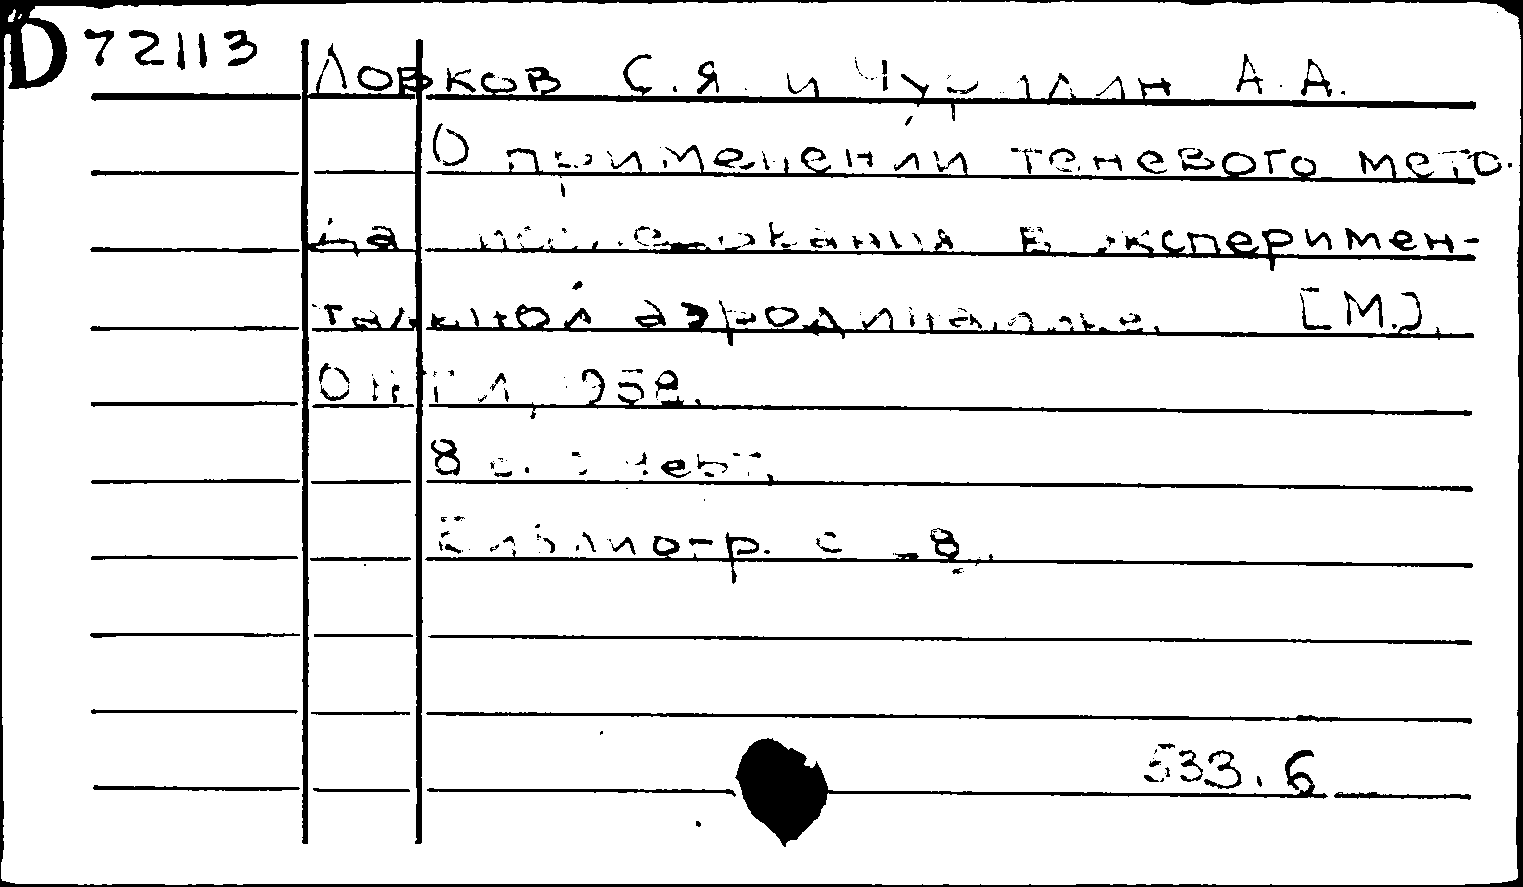 D 72113
Ловков С.Я. и А.А.
О применении теневого мето-
да исследования в эксперимен-
тальной аэродинамике. [М.],
ОНТИ, 1958.
8 с. черт.
Библиогр. с. 8.
533.6